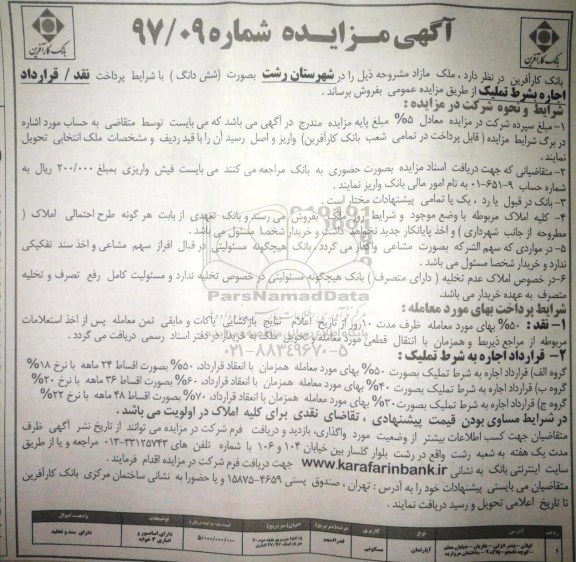 آگهی مزایده شماره ۹۷/۰۹
بانک کارآفرین
بانک کارآفرین
بانک کارآفرین در نظر دارد ، ملک مازاد مشروحه ذیل را در شهرستان رشت بصورت (شش دانگ ) با شرایط پرداخت نقد / قرارداد
اجاره بشرط تملیک از طریق مزایده عمومی بفروش برساند .
شرایط و نحوه شرکت در مزایده :
۱- مبلغ سپرده شرکت در مزایده معادل ۵% مبلغ پایه مزایده مندرج در آگهی می باشد که می بایست توسط متقاضی به حساب مورد اشاره
در برگ شرایط مزایده ( قابل پرداخت در تمامی شعب بانک کارآفرین) واریز و اصل رسید آن را با قید ردیف و مشخصات ملک انتخابی تحویل
نمایند .
۲- متقاضیانی که جهت دریافت اسناد مزایده بصورت حضوری به بانک مراجعه می کنند می بایست فیش واریزی بمبلغ ۲۰۰/۰۰۰ ریال به
شماره حساب ۹-۶۵۱-۰۱ به نام امور مالی بانک واریز نمایند .
۳- بانک در قبول یا رد ، یک یا تمامی پیشنهادات مختار است .
۴- کلیه املاک مربوطه با وضع موجود و شرایط بفروش می رسند و بانک تعهدی از بابت هر گونه طرح احتمالی املاک (
مطروحه از جانب شهرداری ) و اخذ پایانکار جدید نخواهد داشت و خریدار شخصا مسئول می باشد .
۵- در مواردی که سهم الشرکه بصورت مشاعی واگذار می گردد، بانک هیچگونه مسئولیتی در قبال افراز سهم مشاعی و اخذ سند تفکیکی
ندارد و خریدار شخصا مسئول می باشد .
۶-در خصوص املاک عدم تخلیه ( دارای متصرف ) بانک هیچگونه مسئولیتی در خصوص تخلیه ندارد و مسئولیت کامل رفع تصرف و تخلیه
متصرف به عهده خریدار می باشد.
ParsNamadData
۰۲۱-۸۸۳۴۹۶۷۰-۵
شرایط پرداخت بهای مورد معامله :
۱- نقد : ۵۰% بهای مورد معامله ظرف مدت ۱۰ روز از تاریخ اعلام نتایج بازگشایی پاکات و مابقی ثمن معامله پس از اخذ استعلامات
مربوطه از مراجع ذیربط و همزمان با انتقال قطعی مورد معامله و تحویل ملک به خریدار در دفتر اسناد رسمی دریافت می گردد .
۲- قرارداد اجاره به شرط تملیک :
گروه الف) قرارداد اجاره به شرط تملیک بصورت ۵۰% بهای مورد معامله همزمان با انعقاد قرارداد، ۵۰% بصورت اقساط ۲۴ ماهه با نرخ ۱۸%
گروه ب) قرارداد اجاره به شرط تملیک بصورت ۴۰% بهای مورد معامله همزمان با انعقاد قرارداد، ۶۰% بصورت اقساط ۳۶ ماهه با نرخ ۲۰%
گروه ج) قرارداد اجاره به شرط تملیک بصورت۳۰% بهای مورد معامله همزمان با انعقاد قرارداد، ۷۰% بصورت اقساط ۴۸ ماهه با نرخ ۲۲%
در شرایط مساوی بودن قیمت پیشنهادی ، تقاضای نقدی برای کلیه املاک در اولویت می باشد .
متقاضیان جهت کسب اطلاعات بیشتر از وضعیت مورد واگذاری، بازدید و دریافت فرم شرکت در مزایده می توانند از تاریخ نشر آگهی ظرف
مدت یک هفته به شعبه رشت واقع در رشت بلوار گلسار بین خیابان ۱۰۴ و ۱۰۶ با شماره تلفن های ۳۳۱۲۵۷۴۳-۰۱۳ مراجعه و یا از طریق
سایت اینترنتی بانک به نشانی www.karafarinbank.ir جهت دریافت فرم شرکت در مزایده اقدام فرمایند .
متقاضیان می بایستی پیشنهادات خود را به آدرس : تهران ، صندوق پستی ۴۶۵۹-۱۵۸۷۵ و یا حضورا به نشانی ساختمان مرکزی بانک کارآفرین
تا تاریخ اعلامی تحویل و رسید دریافت نمایند .
آدرس نوع کاربری توضیحات وضعیت
۱ آپارتمان مسکونی قدرالسهم ۵/۰۰۰/۰۰۰/۰۰۰ دارای آسانسور و انباری ۲ خوابه دارای سند و تخلیه